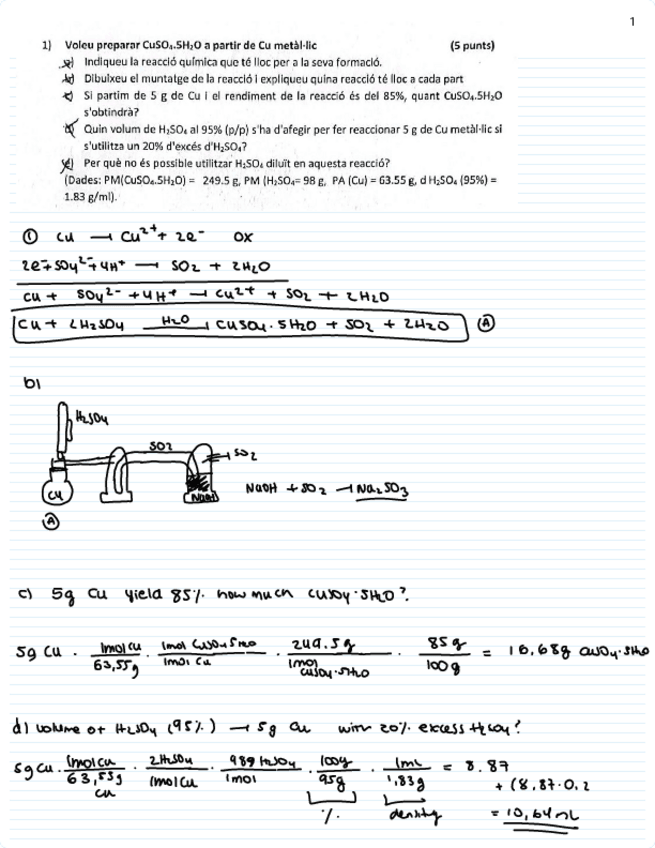 1
1) Voleu preparar CuSO₄.5H₂O a partir de Cu metàl·lic (5 punts)
a) Indiqueu la reacció química que té lloc per a la seva formació.
b) Dibuixeu el muntatge de la reacció i expliqueu quina reacció té lloc a cada part
c) Si partim de 5 g de Cu i el rendiment de la reacció és del 85%, quant CuSO₄.5H₂O
s'obtindrà?
Quin volum de H₂SO₄ al 95% (p/p) s'ha d'afegir per fer reaccionar 5 g de Cu metàl·lic si
s'utilitza un 20% d'excés d'H₂SO₄?
Per què no és possible utilitzar H₂SO₄ diluït en aquesta reacció?
(Dades: PM(CuSO₄.5H₂O) = 249.5 g, PM (H₂SO₄= 98 g, PA (Cu) = 63.55 g, d H₂SO₄ (95%) =
1.83 g/ml).
① Cu → Cu²⁺ + 2e⁻ OX
2e⁻ + SO₄²⁻ + 4H⁺ → SO₂ + 2H₂O
Cu + SO₄²⁻ + 4H⁺ → Cu²⁺ + SO₂ + 2H₂O
Cu + 2H₂SO₄ H₂O → CuSO₄·5H₂O + SO₂ + 2H₂O Ⓐ
b)
H₂SO₄
SO₂
→ SO₂
Cu
NaOH
NaOH + SO₂ → Na₂SO₃
Ⓐ
c) 5g Cu yield 85% how much CuSO₄·5H₂O?
5g Cu · 1mol Cu / 63,55g · 1mol CuSO₄5H₂O / 1mol Cu · 249.5g / 1mol CuSO₄·5H₂O · 85g / 100g = 16,68g CuSO₄·5H₂O
d) volume of H₂SO₄ (95%) → 5g Cu with 20% excess H₂SO₄?
5g Cu · 1mol Cu / 63,55g Cu · 2H₂SO₄ / 1mol Cu · 98g H₂SO₄ / 1mol · 100g / 95g · 1mL / 1,83g = 8.87
+ (8,87·0,2
% density = 10,64mL